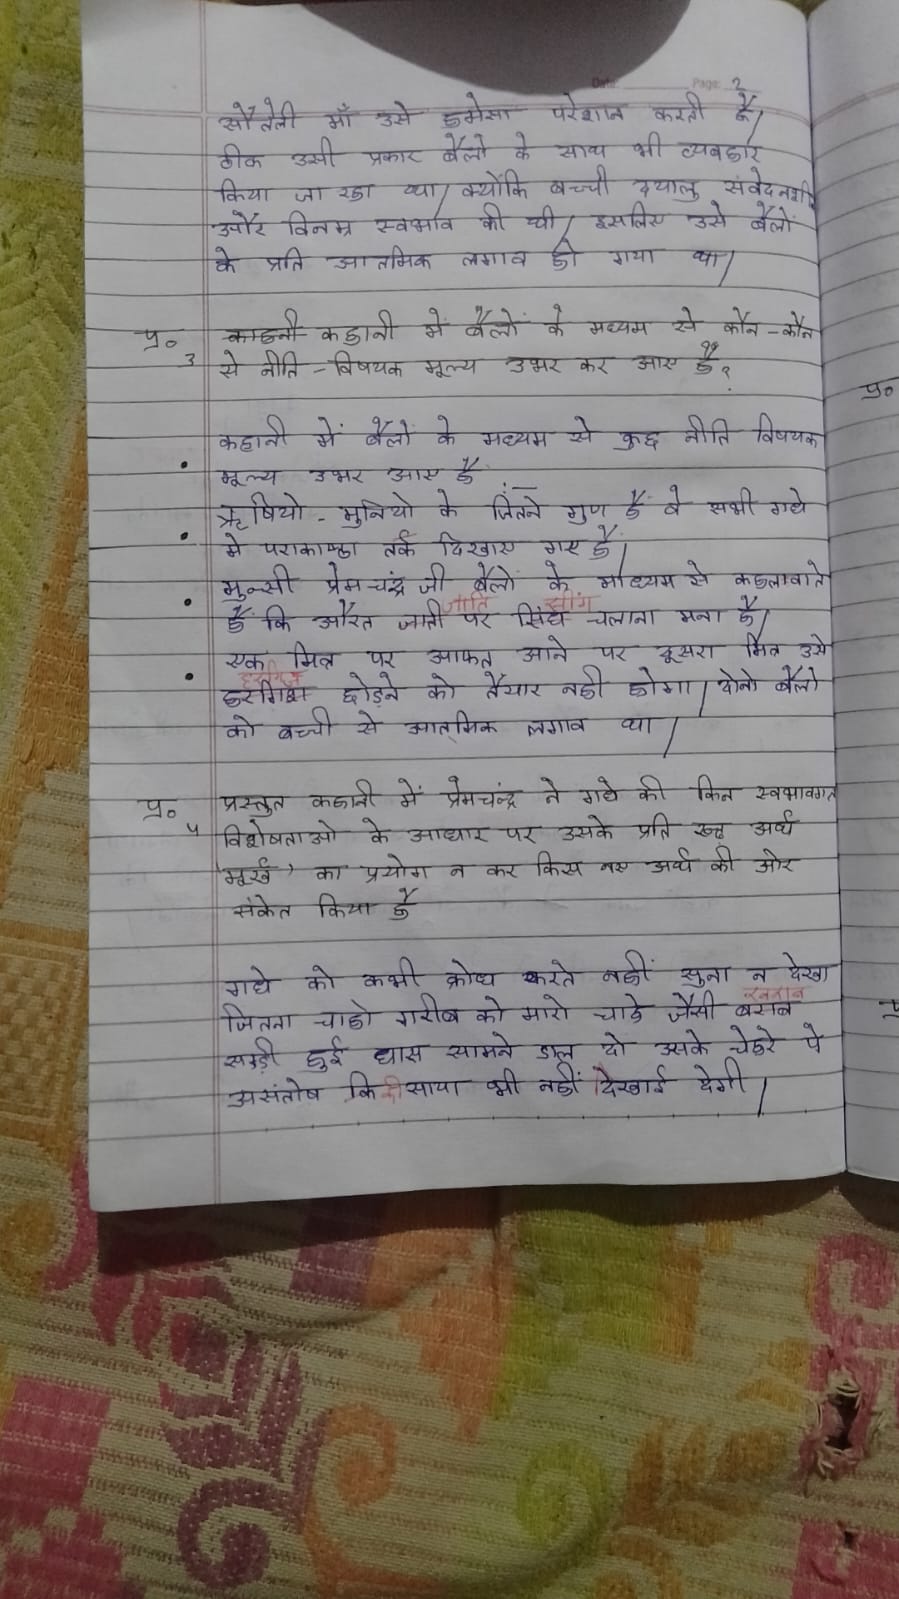 Page: 2
सौतेली माँ उसे हमेसा परेशान करती है।
ठीक उसी प्रकार बैलो के साथ भी व्यवहार
किया जा रहा था। क्योंकि बच्ची दयालु संवेदनशी
और विनम्र स्वभाव की थी। इसलिए उसे बैलों
के प्रति आतमिक लगाव हो गया था।
प्र० 3 कहानी में बैलों के मध्यम से कौन-कौन
से नीति-विषयक मूल्य उभर कर आए हैं?
प्र०
कहानी में बैलों के मध्यम से कुछ नीति विषयक
मूल्य उभर आए है :—
ऋषियो - मुनियो के जितने गुण हैं वे सभी गधे
मे पराकाष्ठा तर्क दिखाए गए हैं।
मुन्सी प्रेमचंद्र जी बैलों के माध्यम से कहलावाते
जाति सींग
हैं कि औरत जाती पर सिंघ चलाना मना है।
एक मित्र पर आफत आने पर दूसरा मित्र उसे
हरगिज
छोड़ने को तैयार नही होगा। दोनो बैलो
को बच्ची से आत्मिक लगाव था।
प्र० 4 प्रस्तुत कहानी में प्रेमचंद्र ने गधे की किन स्वभावगत
विशेषताओ के आधार पर उसके प्रति रूढ़ अर्थ
'मूर्ख' का प्रयोग न कर किस नए अर्थ की ओर
संकेत किया है
गधे को कभी क्रोध करते नहीं सुना न देखा
जितना चाहो गरीब को मारो चाहे जैसी खराब
सड़ी हुई घास सामने डाल दो उसके चेहरे पे
असंतोष कि की साया भी नहीं दिखाई देगी।